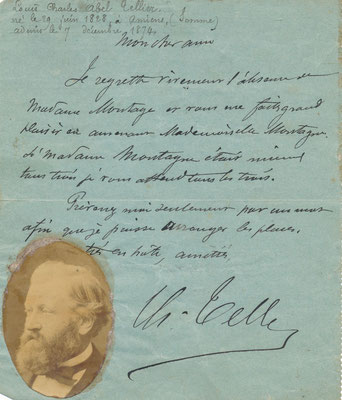 Louis Charles Abel Tellier
né le 29 juin 1828, à Amiens, (Somme)
admis le 7 décembre 1874.
Mon cher ami
Je regrette vivement l'absence de
Madame Montagne et vous me faites grand
plaisir en amenant Mademoiselle Montagne.
Si madame Montagne était mieux
tous trois je vous attend tous les trois.
Prévenez moi seulement par un mot
afin que je puisse arranger les places.
en hâte, amitiés
Ch. Tellier